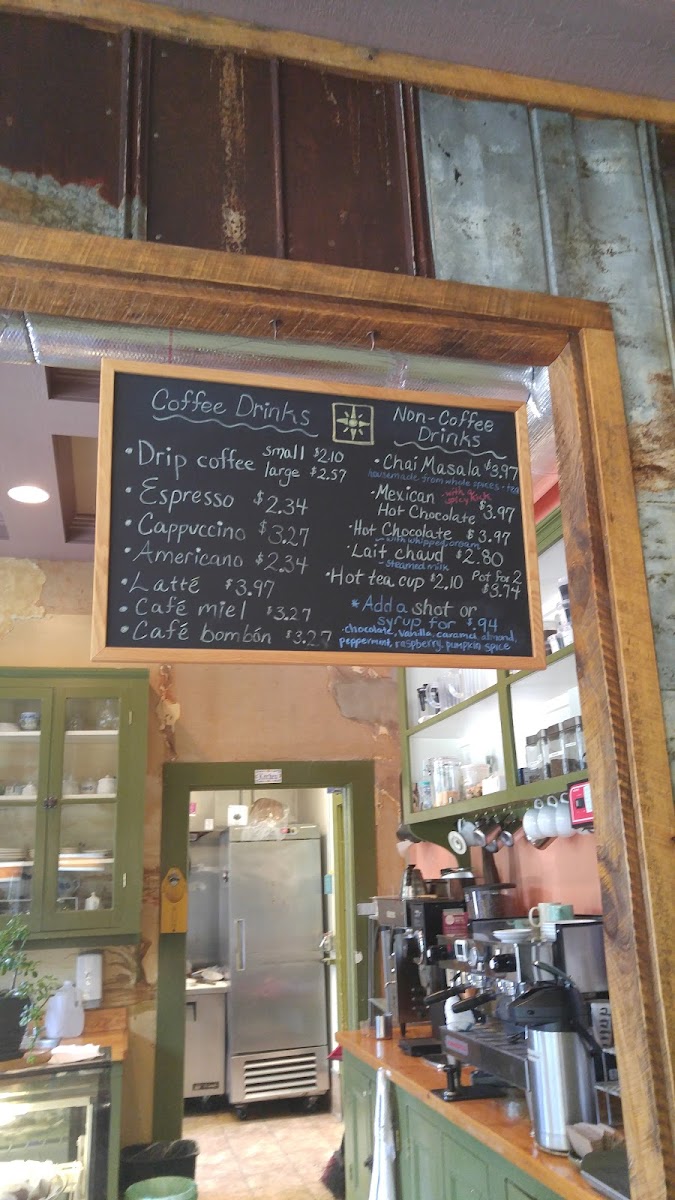 Coffee Drinks
• Drip coffee small $2.10
large $2.57
• Espresso $2.34
• Cappuccino $3.27
• Americano $2.34
• Latté $3.97
• Café miel $3.27
• Café bombón $3.27
Non-Coffee
Drinks
• Chai Masala $3.97
housemade from whole spices + tea
• Mexican - with a
spicy kick
Hot Chocolate $3.97
• Hot Chocolate $3.97
- with whipped cream
• Lait chaud $2.80
- steamed milk
• Hot tea cup $2.10 Pot for 2
$3.74
* Add a shot or
syrup for $.94
- chocolate, vanilla, caramel, almond,
peppermint, raspberry, pumpkin spice